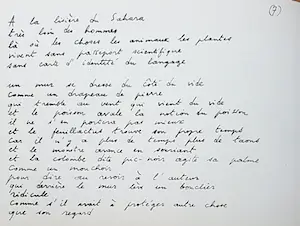 (7)
A la lisière du Sahara
très loin des hommes
là où les choses les animaux les plantes
vivent sans passeport scientifique
sans carte d'identité du langage
un mur se dresse du côté du vide
comme un drapeau de pierre
qui tremble au vent qui vient du vide
et le poisson avale la notion du poisson
il ne s'en portera pas mieux
et le trouve son propre temps
car il n'y a plus de temps plus de taons
et le monstre avance en souriant
et la colombe dite pic-noir agite sa palme
comme un mouchoir
pour dire au revoir à l'auteur
qui derrière le mur lève un bouclier
ridicule
comme s'il avait à protéger autre chose
que son regard